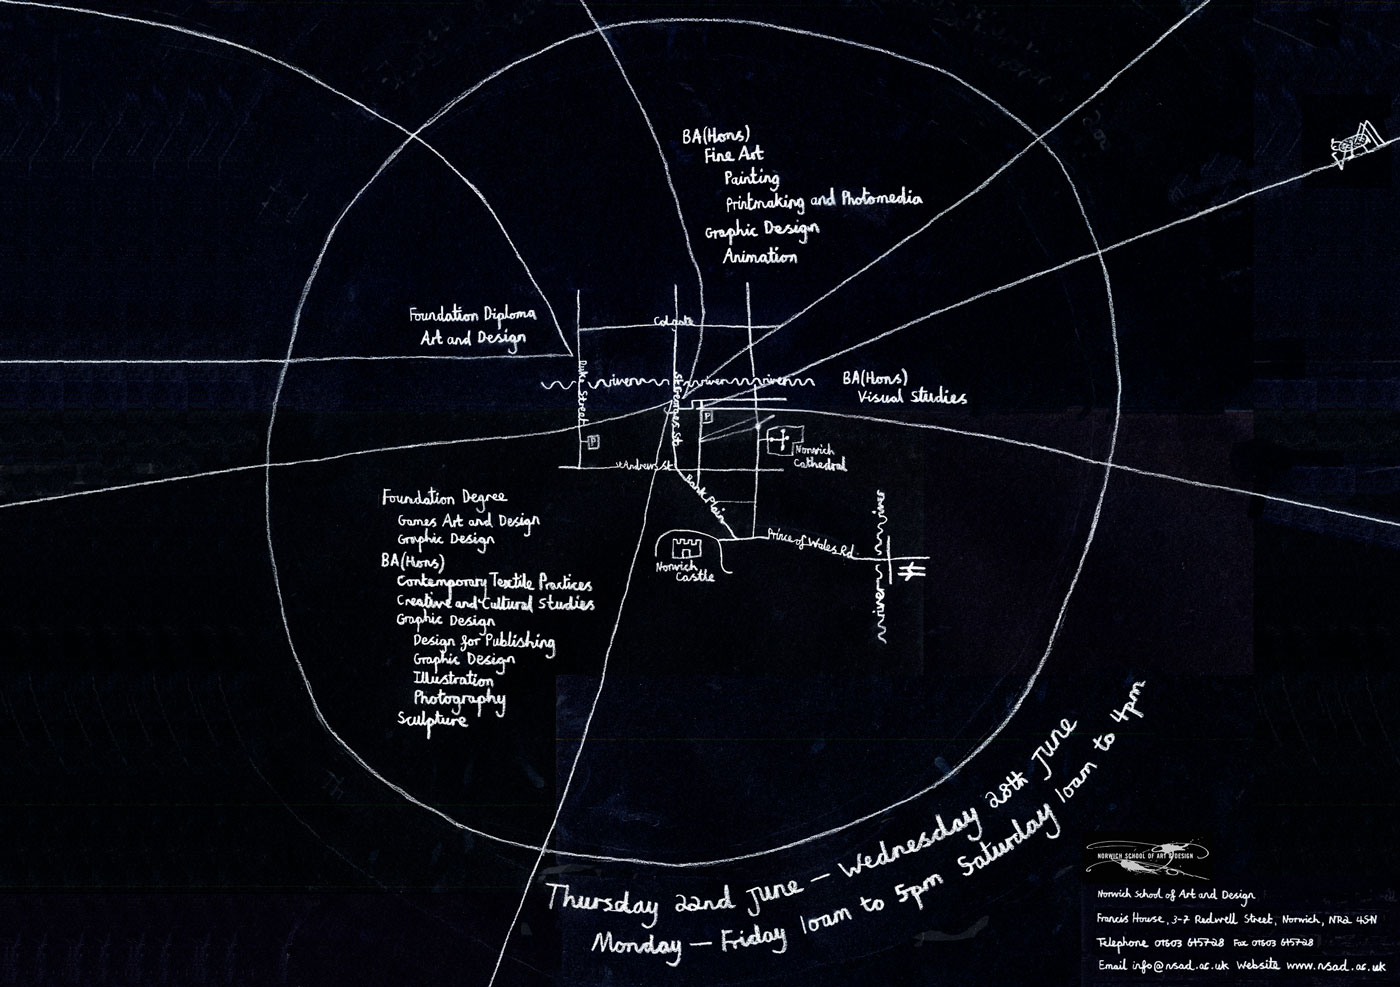 BA(Hons)
Fine Art
Painting
Printmaking and Photomedia
Graphic Design
Animation
Foundation Diploma
Art and Design
Colgate
Duke Street
river
river
river
St Georges St.
P
BA(Hons)
Visual Studies
P
Norwich
Cathedral
St Andrews St.
Bank Plain
Prince of Wales Rd.
Norwich
Castle
river
river
Foundation Degree
Games Art and Design
Graphic Design
BA(Hons)
Contemporary Textile Practices
Creative and Cultural Studies
Graphic Design
Design for Publishing
Graphic Design
Illustration
Photography
Sculpture
Thursday 22nd June – Wednesday 28th June
Monday – Friday 10am to 5pm Saturday 10am to 4pm
NORWICH SCHOOL OF ART & DESIGN
Norwich School of Art and Design
Francis House, 3-7 Redwell Street, Norwich, NR2 4SN
Telephone 01603 615728 Fax 01603 615728
Email info@nsad.ac.uk Website www.nsad.ac.uk